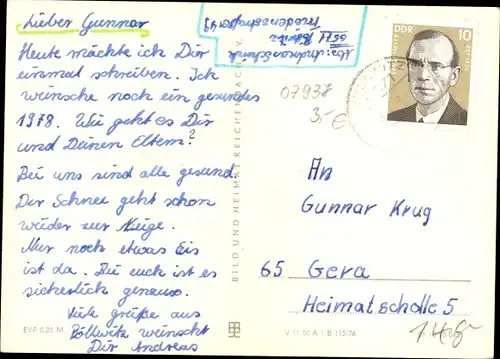 Lieber Gunnar
Heute möchte ich Dir
einmal schreiben. Ich
wünsche noch ein gesundes
1978. Wie geht es Dir
und Deinen Eltern?
Bei uns sind alle gesund.
Der Schnee geht schon
wieder zur Neige.
Nur noch etwas Eis
ist da. Bei euch ist es
sicherlich genauso.
Viele grüße aus
Pöllwitz wünscht
Dir Andreas
EVP 0,25 M
Abs: Andreas
6571 Pöllwitz
BILD UND HEIMAT REICHENBACH
V 11 50 A 1 B 115/76
07937
3,- €
DDR
10
An
Gunnar Krug
65 Gera
Heimatscholle 5